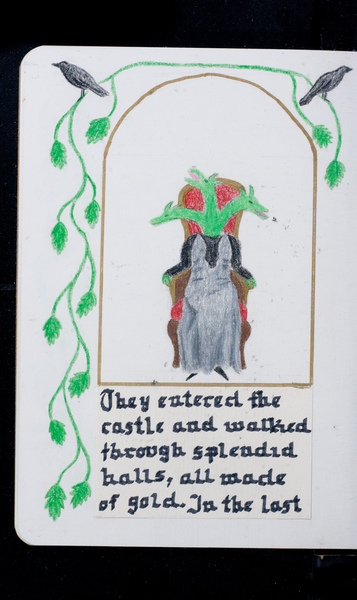 They entered the
castle and walked
through splendid
halls, all made
of gold. In the last